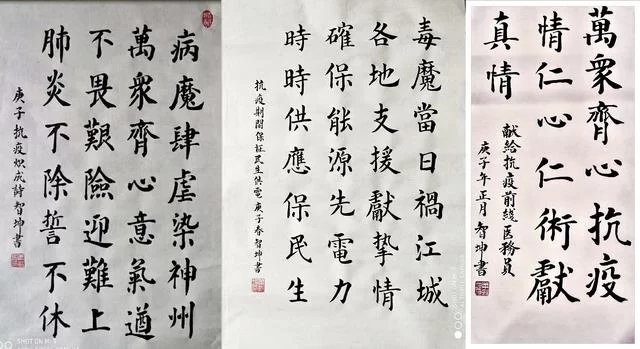 病魔肆虐染神州
萬衆齊心意氣遒
不畏艱險迎難上
肺炎不除誓不休
庚子抗疫炽成詩智坤書
SHOT ON
毒魔當日禍江城
各地支援獻摯情
確保能源先電力
時時供應保民生
抗疫期間保证民生供電庚子春智坤書
萬衆齊心抗疫
情仁心仁術獻
真情
献給抗疫前綫医務員
庚子年正月智坤書